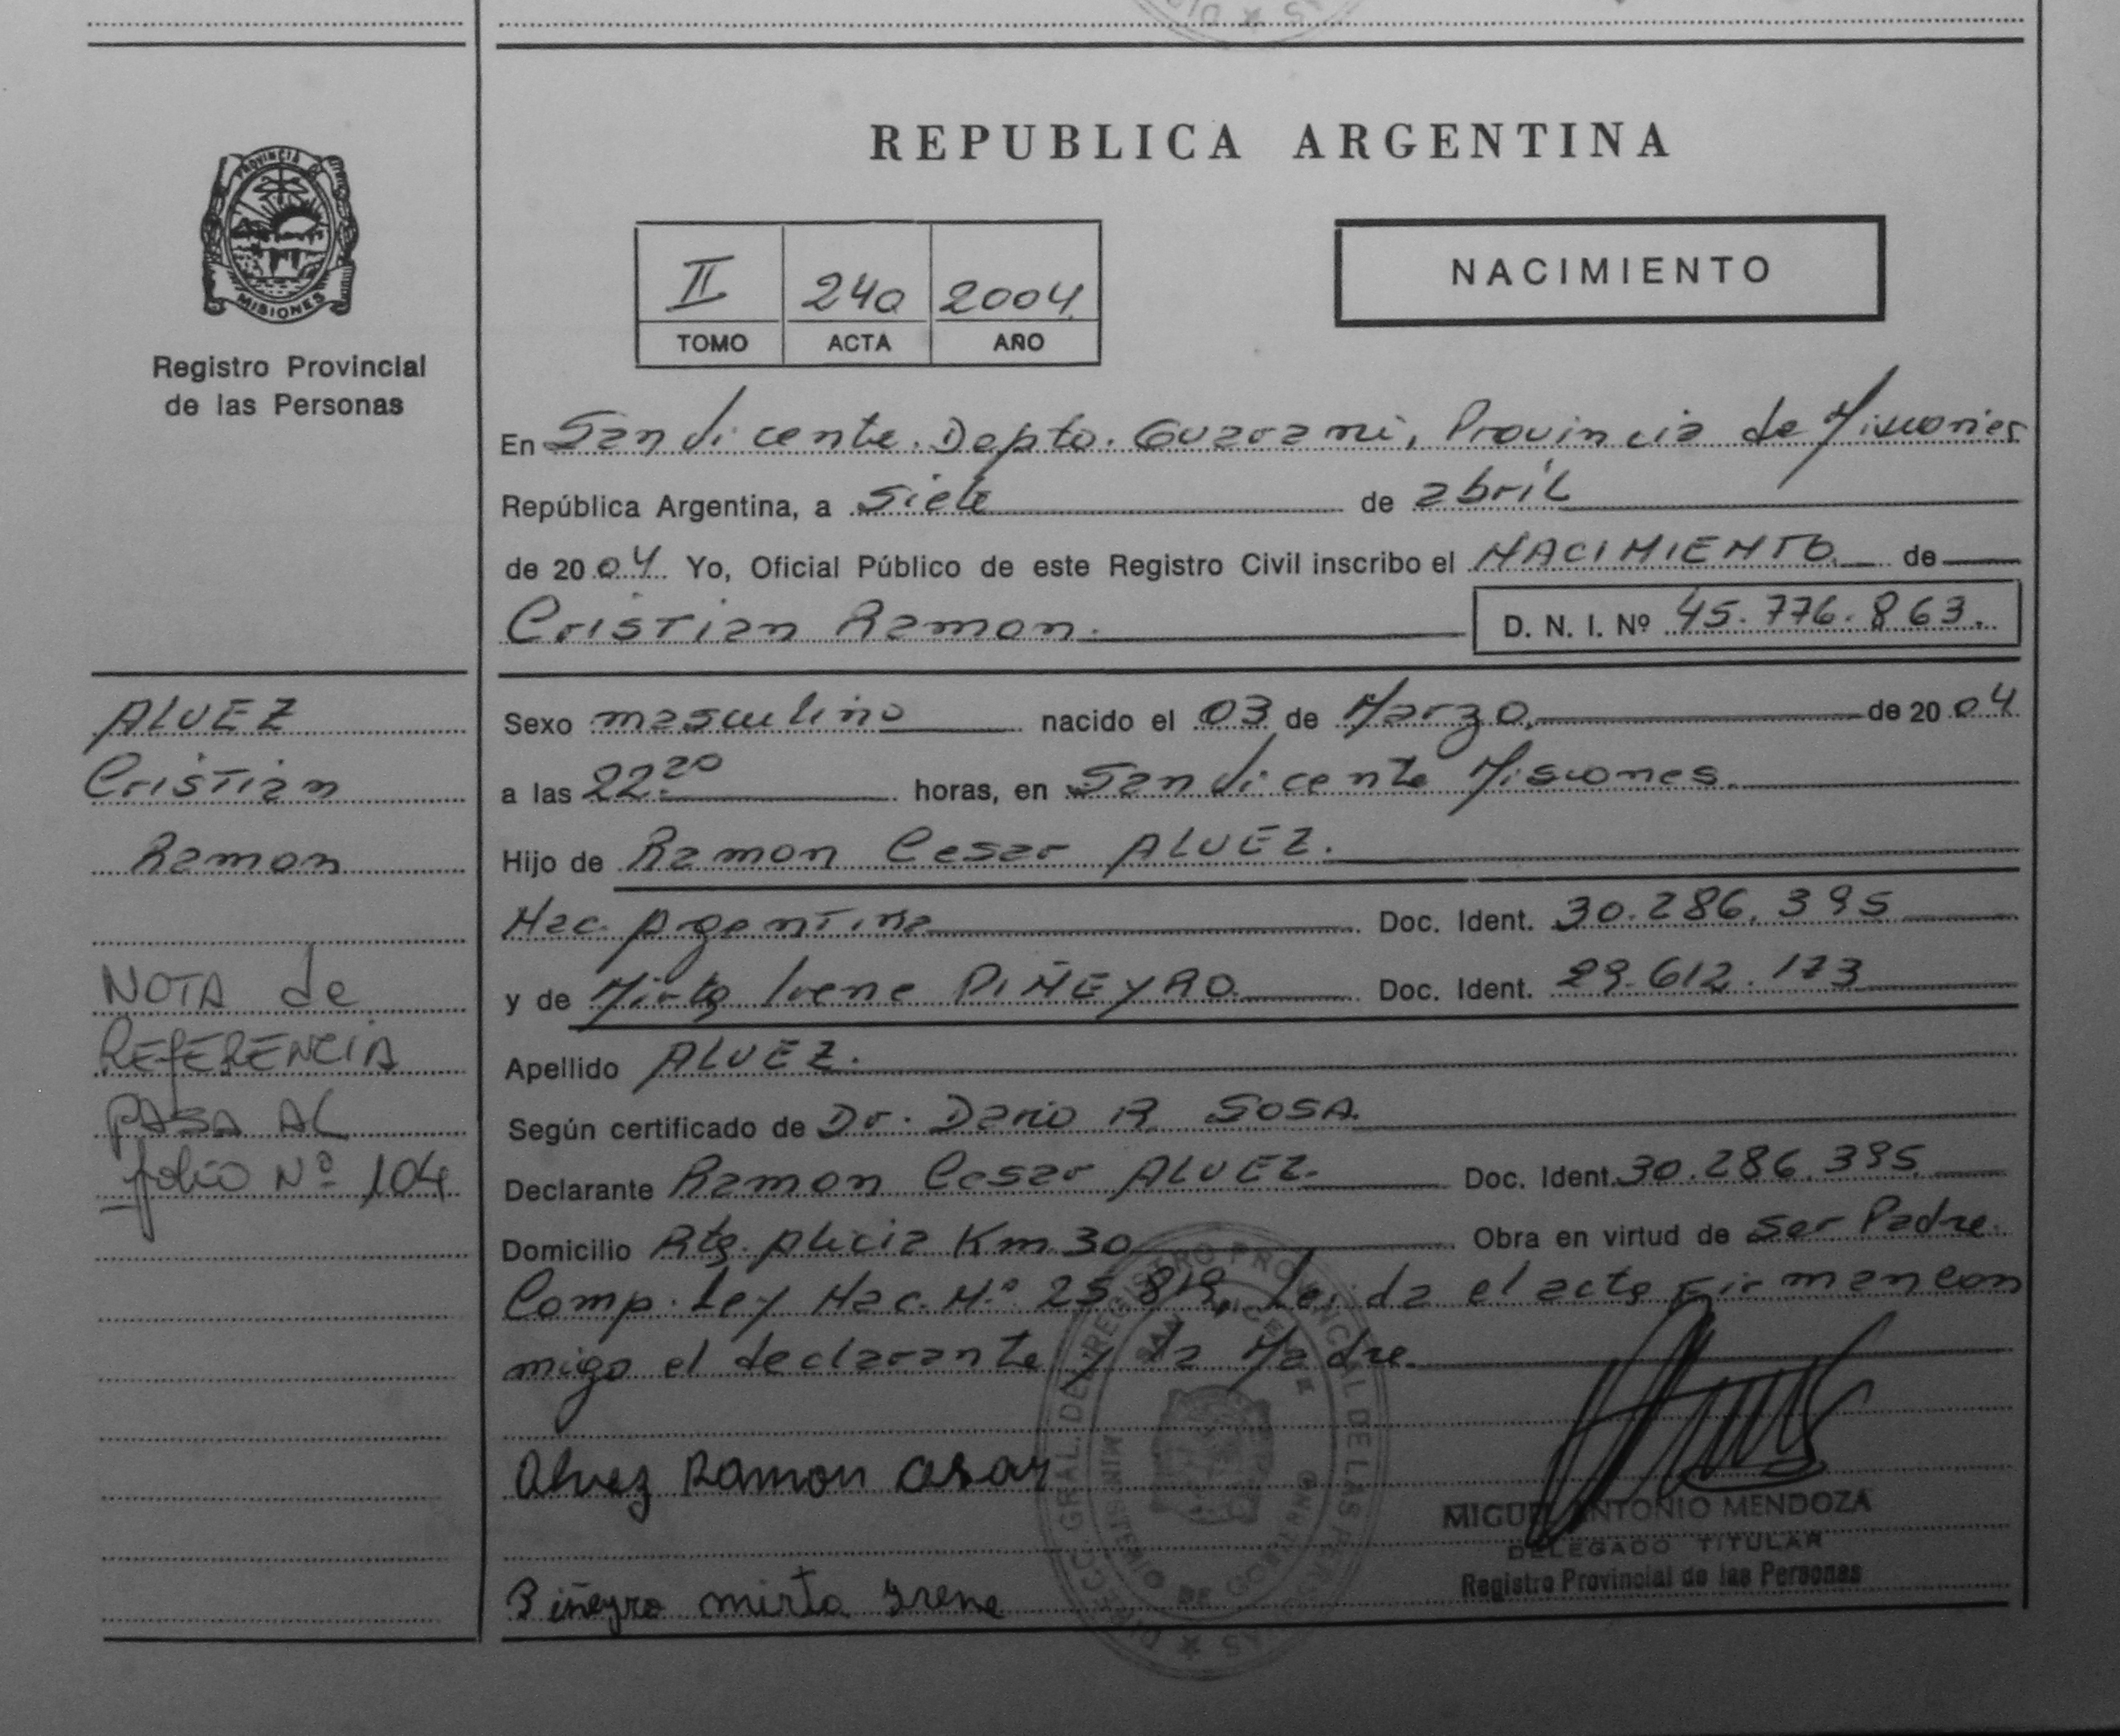 REPUBLICA ARGENTINA
PROVINCIA DE
MISIONES
Registro Provincial
de las Personas
II 240 2004
TOMO ACTA AÑO
NACIMIENTO
En San Vicente. Depto. Guarani, Provincia de Misiones
República Argentina, a siete de abril
de 2004 Yo, Oficial Público de este Registro Civil inscribo el NACIMIENTO de
Cristian Ramon. D. N. I. Nº 45.776.863.
ALVEZ
Cristian
Ramon
NOTA de
REFERENCIA
PASA AL
folio Nº 104
Sexo masculino nacido el 03 de Marzo de 2004
a las 22.20 horas, en San Vicente Misiones.
Hijo de Ramon Cesar ALVEZ.
Nac. Argentina Doc. Ident. 30.286.395
y de Mirta Irene PIÑEYRO Doc. Ident. 29.612.173
Apellido ALVEZ.
Según certificado de Dr. Dario R. SOSA.
Declarante Ramon Cesar ALVEZ. Doc. Ident. 30.286.395
Domicilio Km 30 Obra en virtud de ser Padre.
Comp. Ley Nac. Nº 25.819, Leida el acta Firman con
migo el declarante y la Madre.
Alvez Ramon Cesar
Piñeyro mirta Irene
MIGUEL ANTONIO MENDOZA
DELEGADO TITULAR
Registro Provincial de las Personas
DIRECC. GRAL. DEL REGISTRO PROVINCIAL DE LAS PERSONAS
MINISTERIO DE GOBIERNO
SAN VICENTE